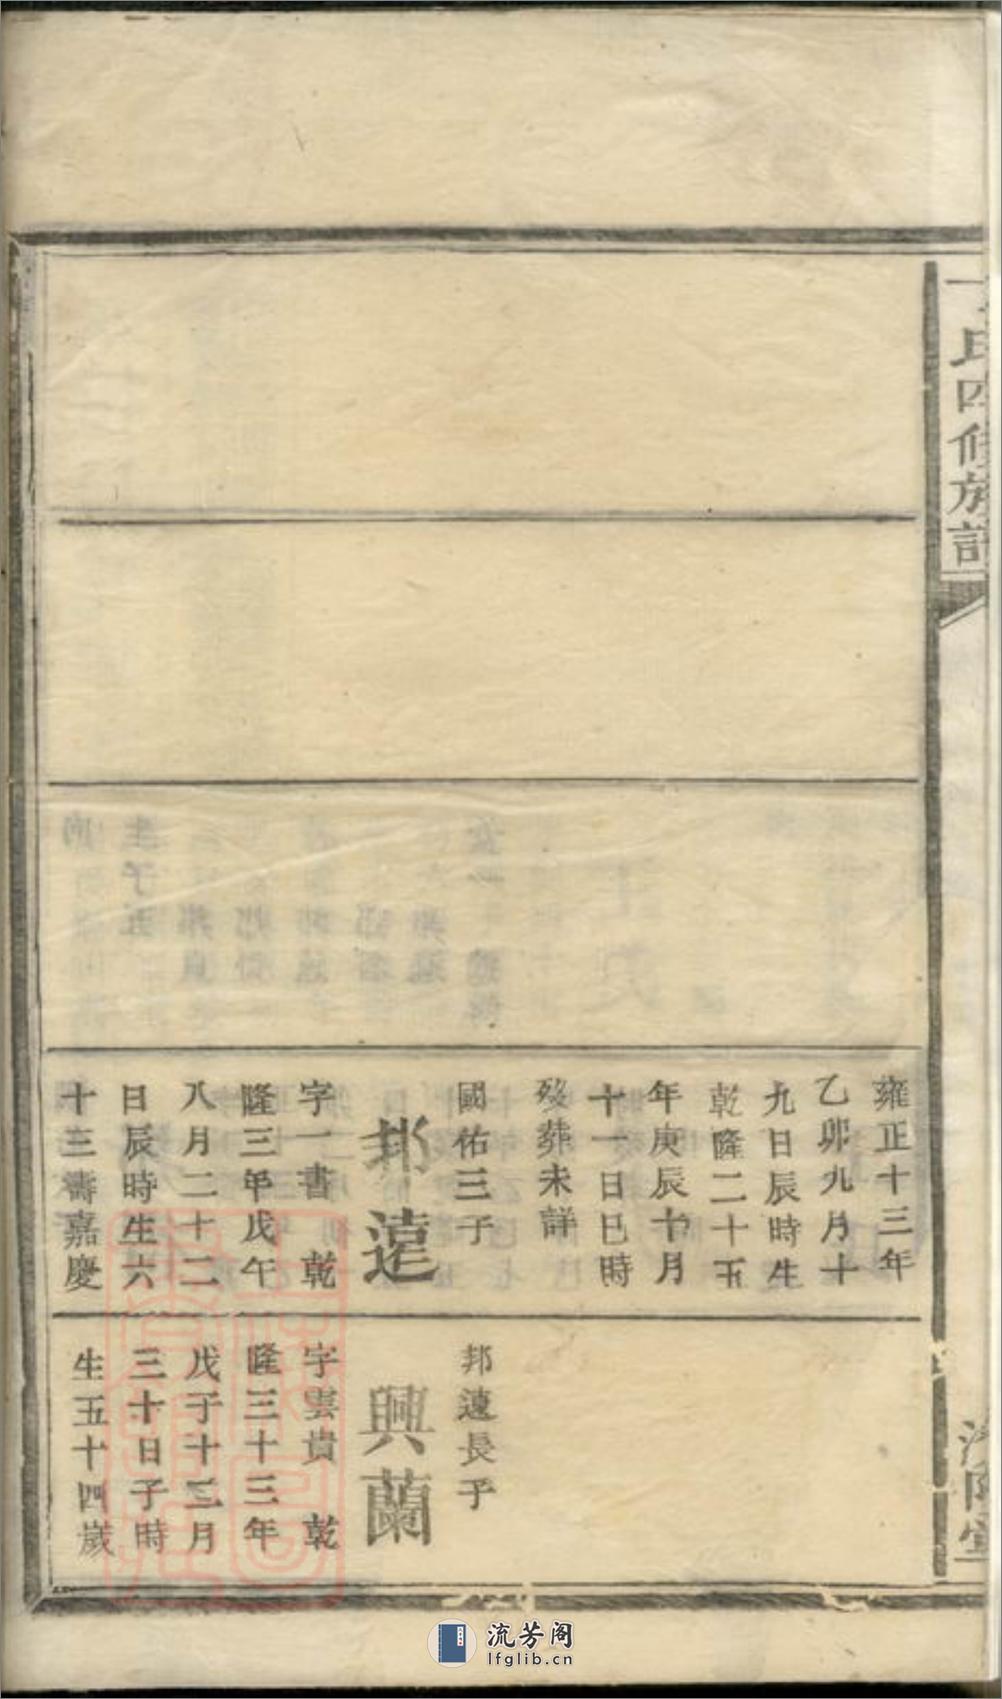 氏四修族譜
雍正十三年
乙卯九月十
九日辰時生
乾隆二十五
年庚辰十月
十一日巳時
歿葬未詳
國佑三子
邦遠
字一書 乾
隆三年戊午
八月二十二
日辰時生六
十三壽嘉慶
邦遠長子
興蘭
字雲貴 乾
隆三十三年
戊子十二月
三十日子時
生五十四歲
流芳阁
lfglib.cn